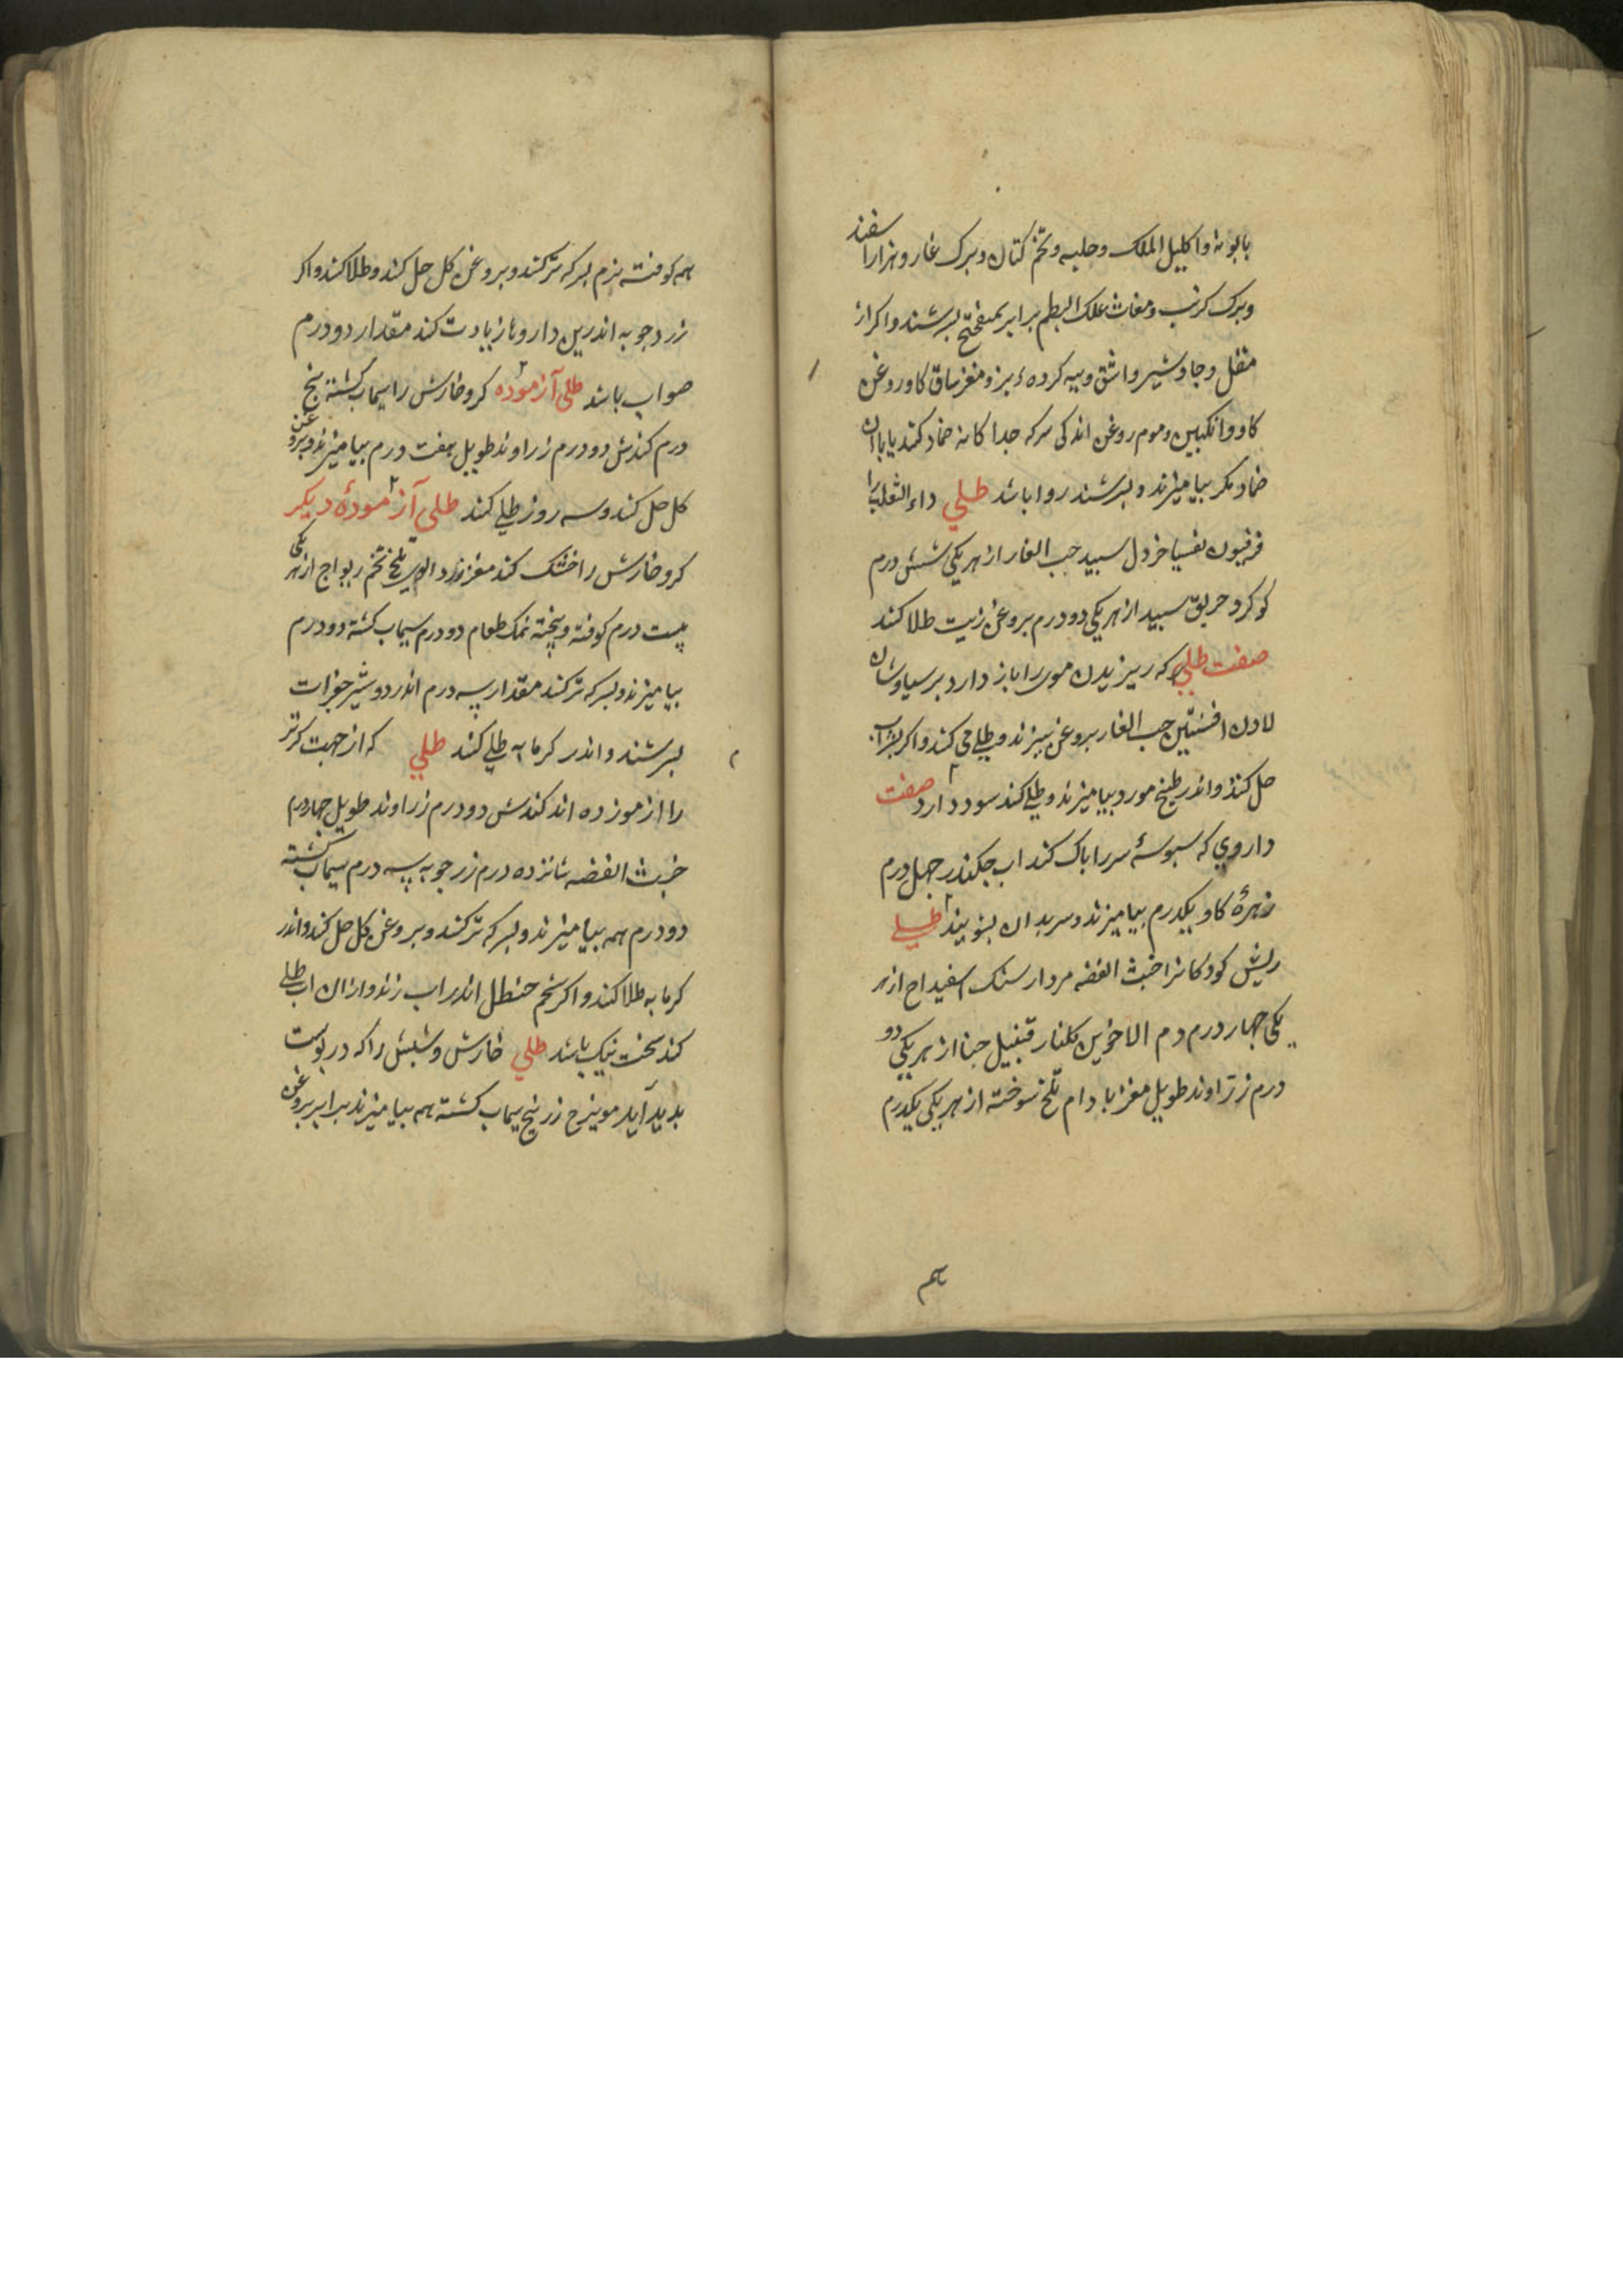 بابونه واكليل الملك وحلبه وتخم كتان وبرك غار وهزارا سفند
وبرك كرنب ومغاث علك البطم برابر بميفختج بسرشند واكر از
مقل وجاوشير واشق وپيه كرده بز ومغز ساق كاو وروغن
كاو وانكبين وموم روغن اندكى سركه جدا كانه ضماد كنند يا با ان
ضماد مكر بياميزند وبسرشند روا باشد طلي داء الثعلب را
فرفيون تفسيا خردل سبيد حب الغار از هر يكى شش درم
كوكرد خربق سبيد از هر يكى دو درم بروغن زيت طلا كند
صفت طلي كه ريزيدن موى را باز دارد برسياوشان
لادن افسنتين حب الغار بروغن بپزند وطلي مى كنند واكر بشراب
حل كنند واندر طبيخ مورد بياميزند وطلي كند سود دارد صفت
داروي كه سبوسۀ سر را باك كند اب جكندر جهل درم
زهرۀ كاو يكدرم بياميزند وسر بدان بشويند طلي
ريش كودكانرا خبث الفضه مردارسنك اسفيداج از هر
يكى جهار درم دم الاخوين كلنار قنبيل حنا از هر يكي دو
درم زراوند طويل مغز بادام تلخ سوخته از هر يكى يكدرم
همه
همه كوفته نرم بسركه تر كنند وبروغن كل حل كنند وطلا كنند واكر
زردجوبه اندرين داروها زيادت كند مقدار دو درم
صواب باشد طلى آزموده كر وخارش را سيماب كشته پنج
درم كندش دو درم زراوند طويل هفت درم بياميزند وبروغن
كل حل كنند وسه روز طلي كنند طلي آزمودۀ ديكر
كر وخارش را خشك كند مغز زردالوى تلخ تخم ريواج از هر يكى
بيست درم كوفته وبيخته نمك طعام دو درم سيماب كشته دو درم
بياميزند وبسركه تر كنند مقدار سه درم اندر دو شير جغرات
بسرشند واندر كرمابه طلي كنند طلي كه از جهت كر تر
را ازموزده اند كندش دو درم زراوند طويل جهاردرم
خبث الفضه شانزده درم زرجوبه سه درم سيماب كشته
دو درم همه بياميزند وبسركه تر كنند وبروغن كل حل كنند واندر
كرمابه طلا كنند واكر شحم حنظل اندر اب زنند وازان اب طلي
كند سخت نيك باشد طلي خارش وشبش را كه در پوست
بديد آيد مويزج زرنيخ سيماب كشته هم بياميزند برابر بروغن